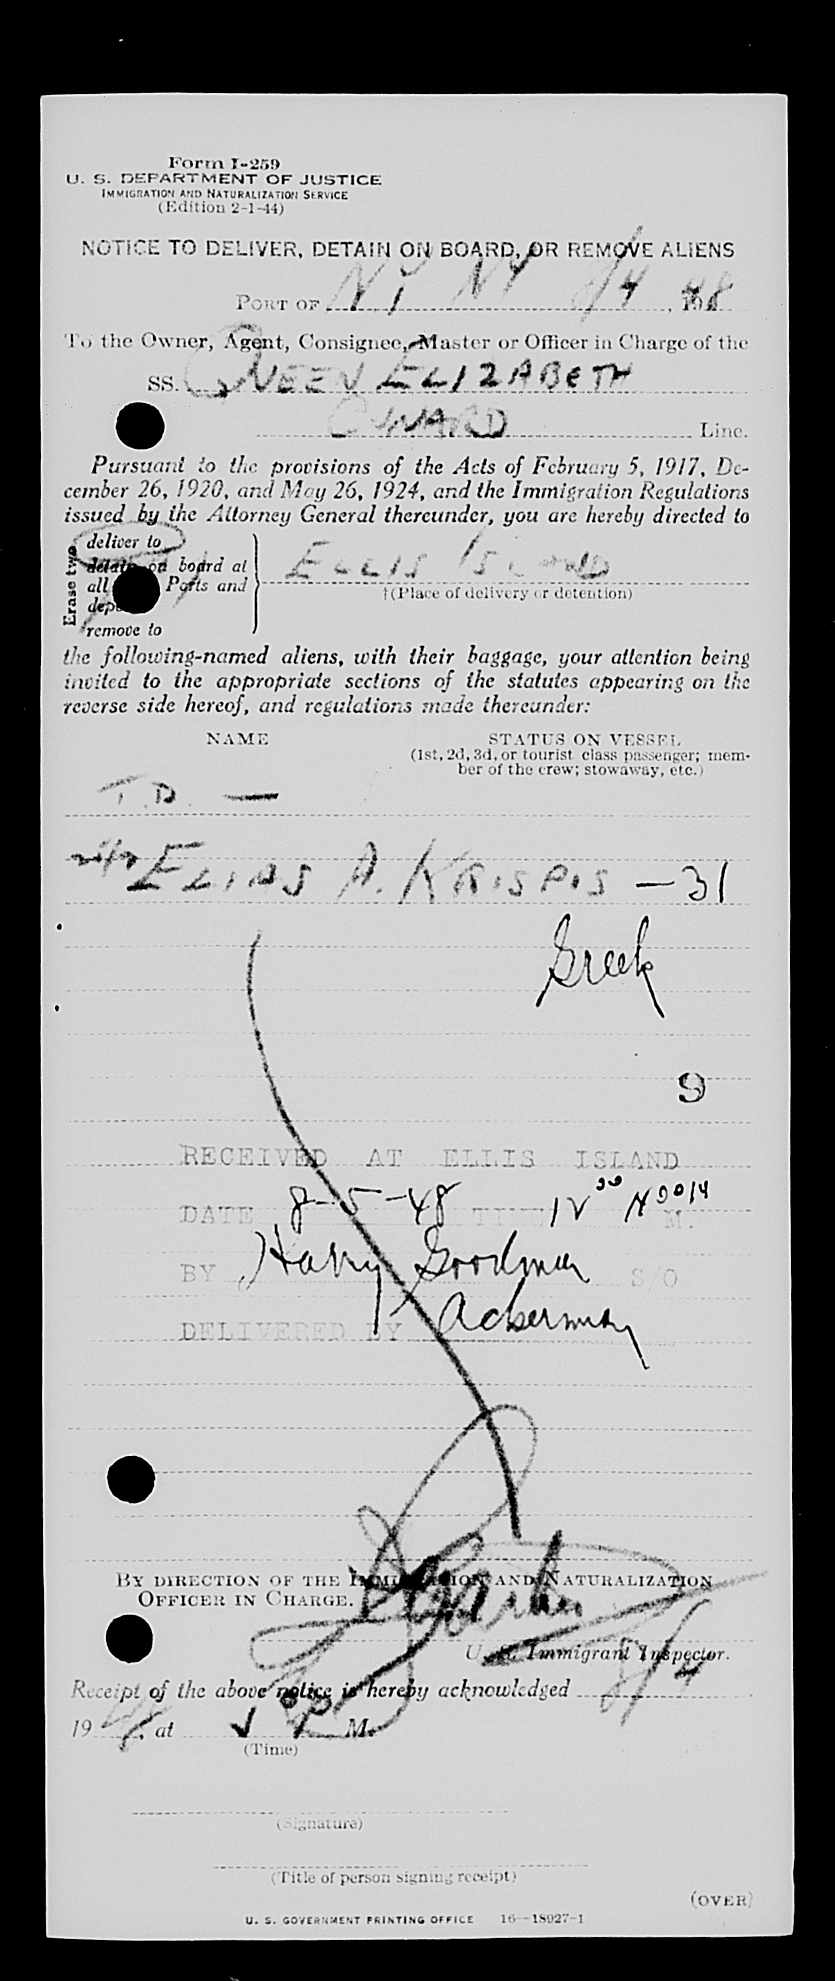 Form I-259
U. S. DEPARTMENT OF JUSTICE
IMMIGRATION AND NATURALIZATION SERVICE
(Edition 2-1-44)
NOTICE TO DELIVER, DETAIN ON BOARD, OR REMOVE ALIENS
PORT OF NY NY 8/4, 1948
To the Owner, Agent, Consignee, Master or Officer in Charge of the
SS. QUEEN ELIZABETH
CUNARD Line.
Pursuant to the provisions of the Acts of February 5, 1917, De-
cember 26, 1920, and May 26, 1924, and the Immigration Regulations
issued by the Attorney General thereunder, you are hereby directed to
Erase two
deliver to
detain on board at
all Ports and
remove to
ELLIS ISLAND
†(Place of delivery or detention)
the following-named aliens, with their baggage, your attention being
invited to the appropriate sections of the statutes appearing on the
reverse side hereof, and regulations made thereunder:
NAME STATUS ON VESSEL
(1st, 2d, 3d, or tourist class passenger; mem-
ber of the crew; stowaway, etc.)
T.D. —
ELIAS A. KRISPIS — 31
Greek
9
RECEIVED AT ELLIS ISLAND
DATE 8-5-48 TIME 12 00 Noon M.
BY Harry Goodman S/O
DELIVERED BY Ackerman
BY DIRECTION OF THE IMMIGRATION AND NATURALIZATION
OFFICER IN CHARGE.
U. S. Immigrant Inspector.
Receipt of the above notice is hereby acknowledged 8/4
19 48, at M.
(Time)
(Signature)
(Title of person signing receipt)
(OVER)
U. S. GOVERNMENT PRINTING OFFICE 16—18927-1